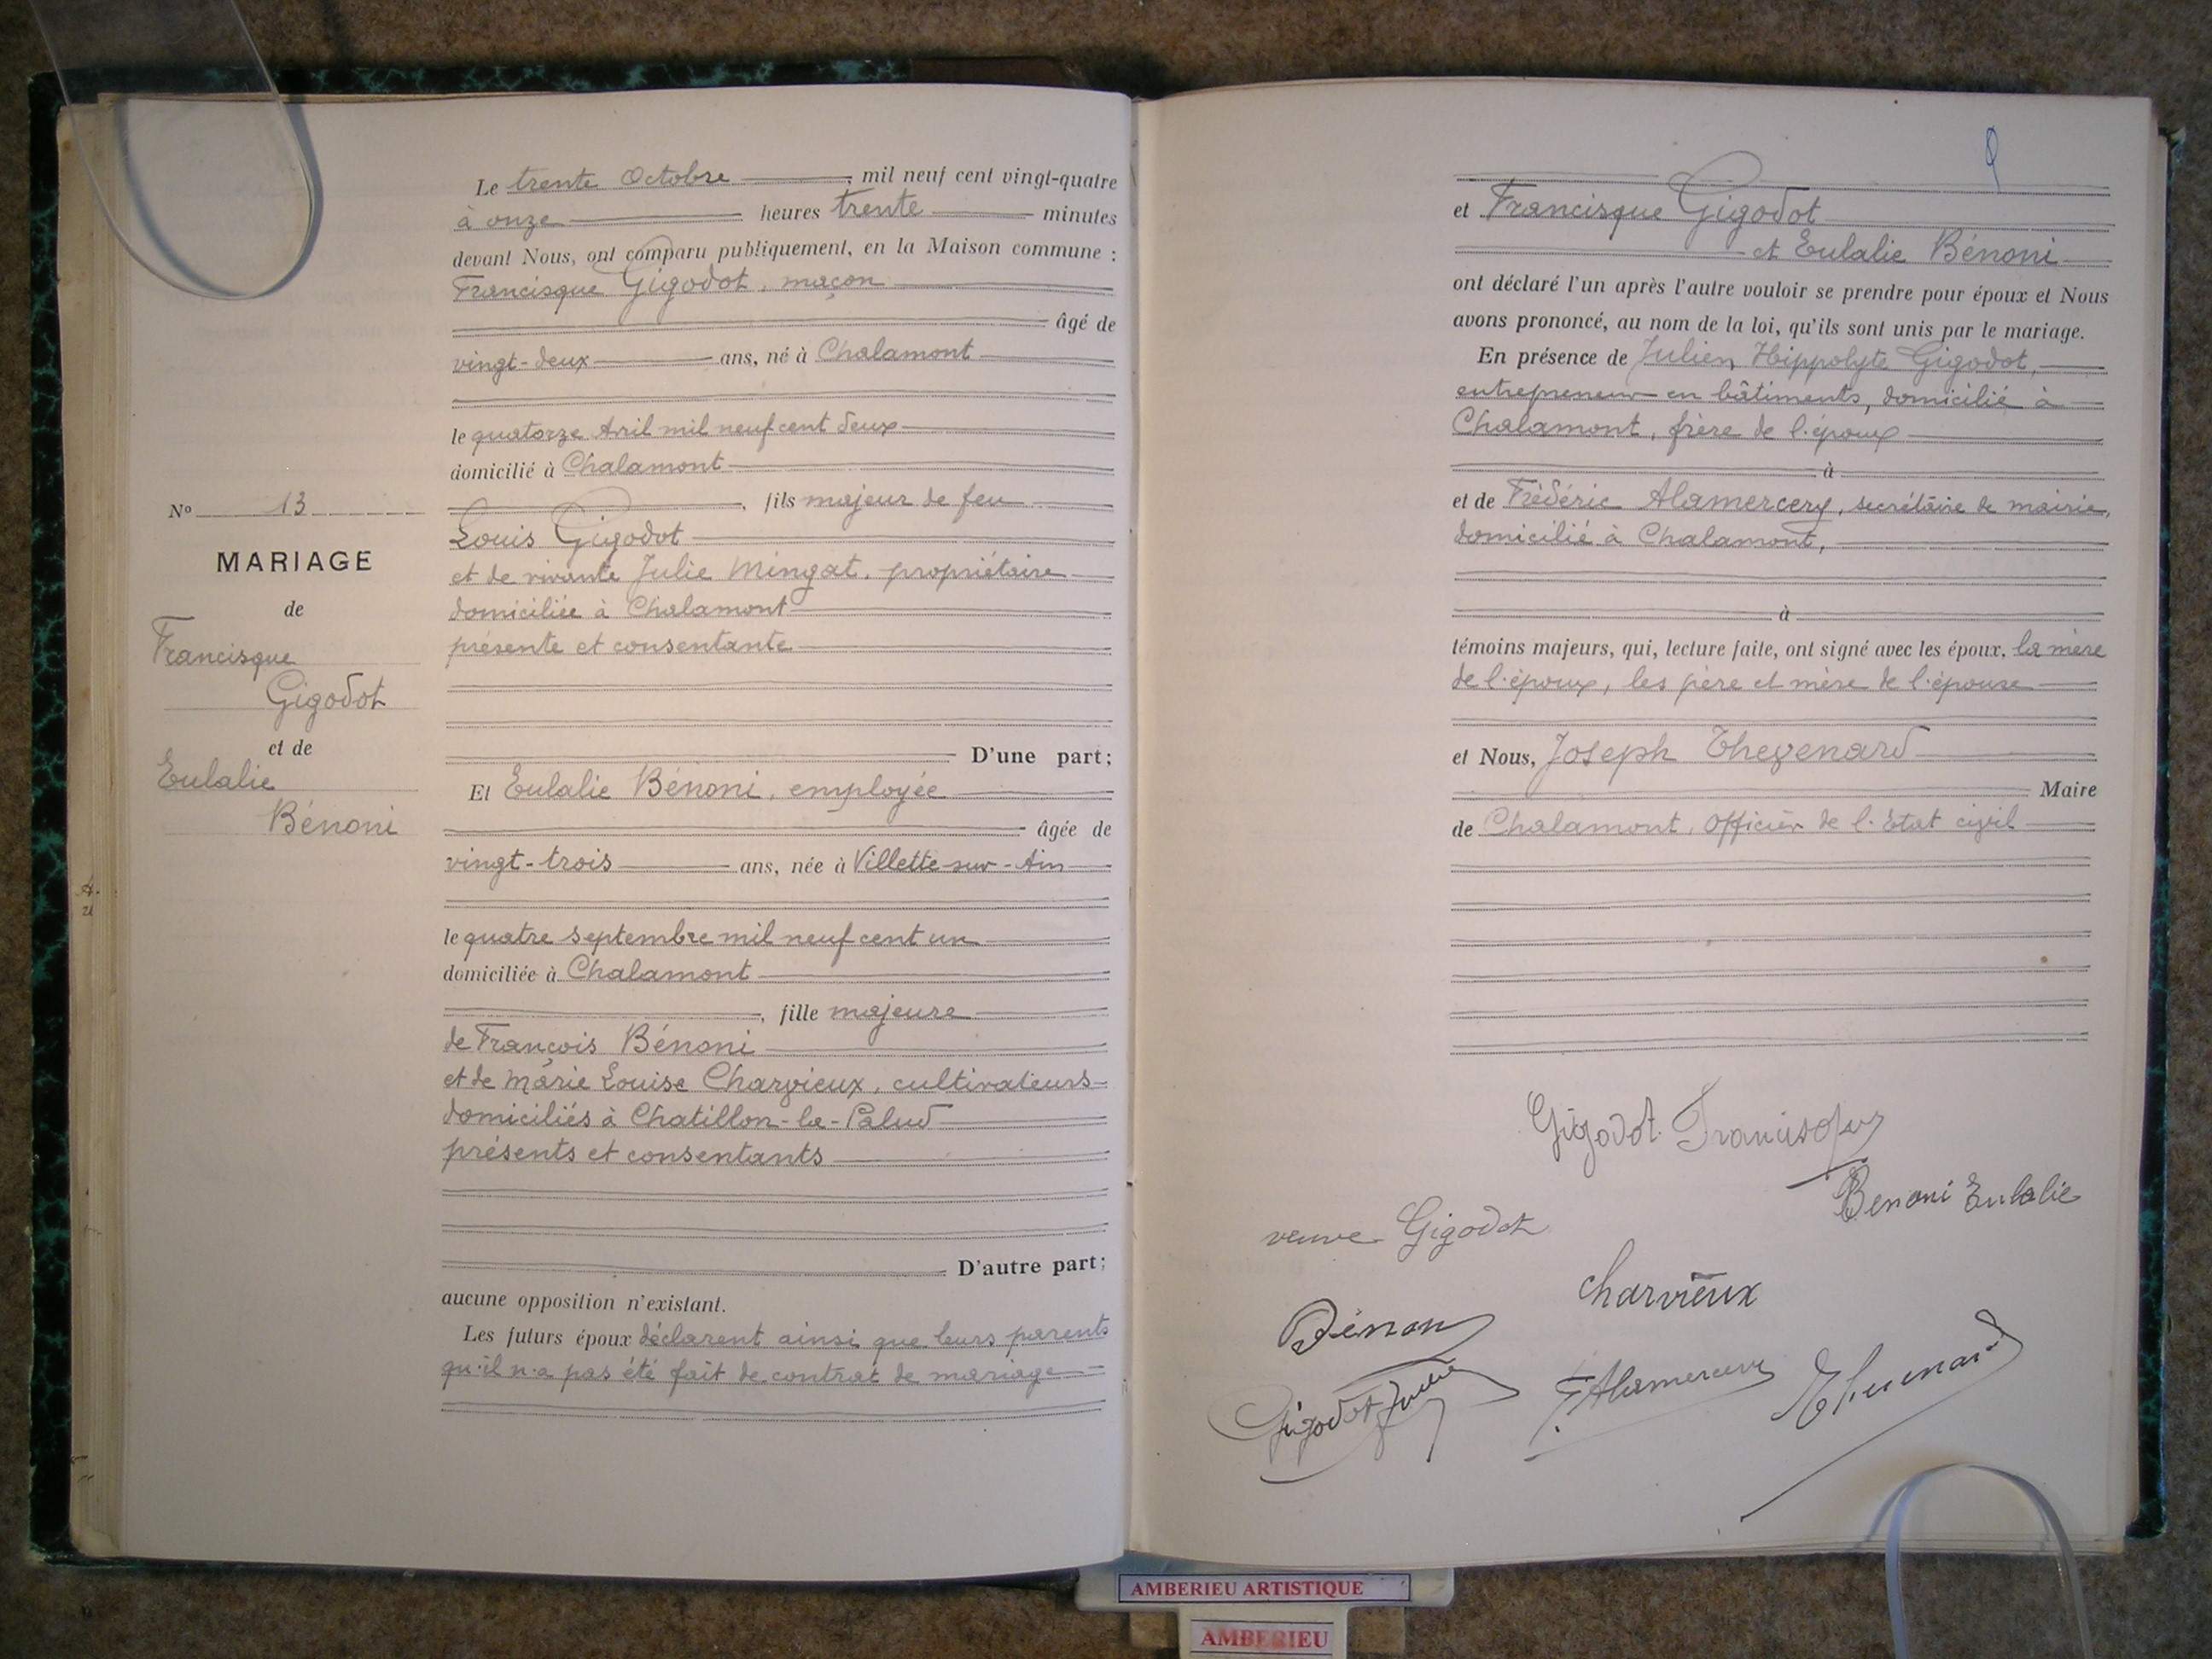 Le trente Octobre, mil neuf cent vingt-quatre
à onze heures trente minutes
devant Nous, ont comparu publiquement, en la Maison commune :
Francisque Gigodot, maçon
âgé de
vingt-deux ans, né à Chalamont
le quatorze Avril mil neuf cent deux
domicilié à Chalamont
, fils majeur de feu
Louis Gigodot
et de vivante Julie Mingat, propriétaire
domiciliée à Chalamont
présente et consentante
D'une part;
Et Eulalie Bénoni, employée
âgée de
vingt-trois ans, née à Villette-sur-Ain
le quatre septembre mil neuf cent un
domiciliée à Chalamont
, fille majeure
de François Bénoni
et de Marie Louise Charvieux, cultivateurs
domiciliés à Chatillon-la-Palud
présents et consentants
D'autre part;
aucune opposition n'existant.
Les futurs époux déclarent ainsi que leurs parents
qu'il n'a pas été fait de contrat de mariage
N° 13
MARIAGE
de
Francisque
Gigodot
et de
Eulalie
Bénoni
et Francisque Gigodot
et Eulalie Bénoni
ont déclaré l'un après l'autre vouloir se prendre pour époux et Nous
avons prononcé, au nom de la loi, qu'ils sont unis par le mariage.
En présence de Julien Hippolyte Gigodot,
entrepreneur en bâtiments, domicilié à
Chalamont, frère de l'époux
à
et de Frédéric Alamercery, secrétaire de mairie,
domicilié à Chalamont,
à
témoins majeurs, qui, lecture faite, ont signé avec les époux, la mère
de l'époux, les père et mère de l'épouse
et Nous, Joseph Thevenard
Maire
de Chalamont, Officier de l'Etat civil
Gigodot Francisque
Benoni Eulalie
veuve Gigodot
Charvieux
Bénoni
Gigodot Julien
F Alamercery
Thevenard
AMBERIEU ARTISTIQUE
AMBERIEU